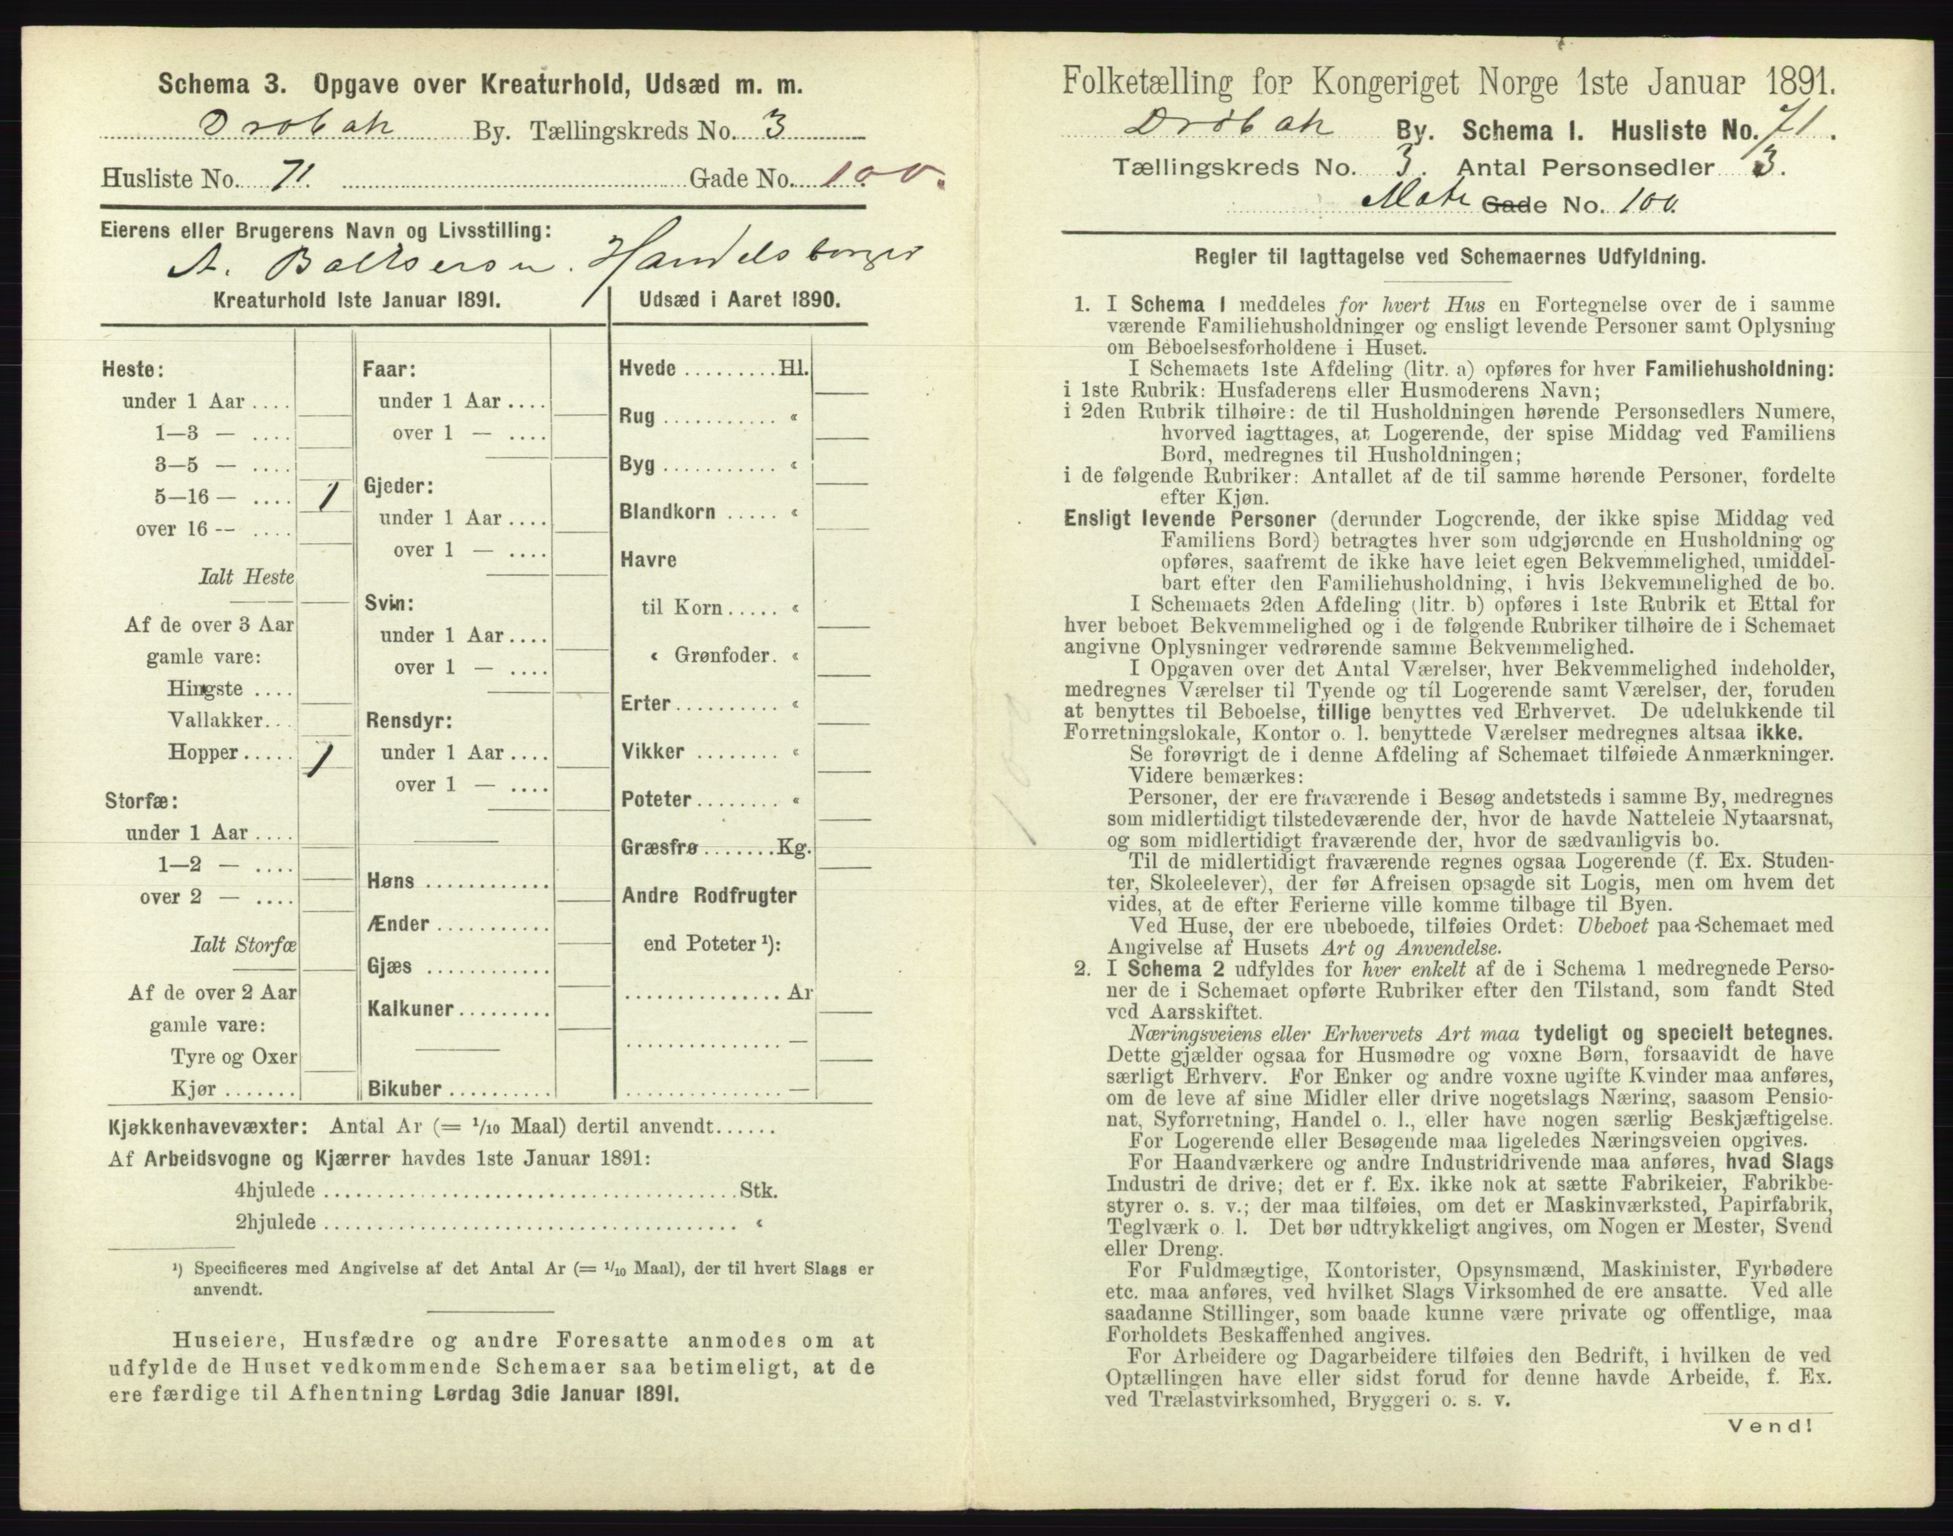 Schema 3. Opgave over Kreaturhold, Udsæd m. m.
Drøbak By. Tællingskreds No. 3
Husliste No. 71. Gade No. 100.
Eierens eller Brugerens Navn og Livsstilling:
A. Boltserson. Handelsborger
Kreaturhold 1ste Januar 1891.
Heste:
under 1 Aar ....
1—3 — ....
3—5 — ....
5—16 — .... 1
over 16 — ....
Ialt Heste
Af de over 3 Aar
gamle vare:
Hingste ....
Vallakker...
Hopper..... 1
Storfæ:
under 1 Aar ....
1—2 — ....
over 2 — ....
Ialt Storfæ
Af de over 2 Aar
gamle vare:
Tyre og Oxer
Kjør .......
Faar:
under 1 Aar ....
over 1 — ....
Gjeder:
under 1 Aar ....
over 1 — ....
Svin:
under 1 Aar ....
over 1 — ....
Rensdyr:
under 1 Aar ....
over 1 — ....
Høns ............
Ænder ...........
Gjæs ............
Kalkuner .........
Bikuber ..........
Udsæd i Aaret 1890.
Hvede ......... Hl.
Rug ........... «
Byg ........... «
Blandkorn ..... «
Havre
til Korn ..... «
« Grønfoder. «
Erter ......... «
Vikker ........ «
Poteter ........ «
Græsfrø ....... Kg.
Andre Rodfrugter
end Poteter ¹):
............... Ar
............... —
............... —
Kjøkkenhavevæxter: Antal Ar (= 1/10 Maal) dertil anvendt......
Af Arbeidsvogne og Kjærrer havdes 1ste Januar 1891:
4hjulede ........................................ Stk.
2hjulede ........................................ «
¹) Specificeres med Angivelse af det Antal Ar (= 1/10 Maal), der til hvert Slags er
anvendt.
Huseiere, Husfædre og andre Foresatte anmodes om at
udfylde de Huset vedkommende Schemaer saa betimeligt, at de
ere færdige til Afhentning Lørdag 3die Januar 1891.
Folketælling for Kongeriget Norge 1ste Januar 1891.
Drøbak By. Schema 1. Husliste No. 71.
Tællingskreds No. 3. Antal Personsedler 3.
Matr Gade No. 100.
Regler til Iagttagelse ved Schemaernes Udfyldning.
1. I Schema 1 meddeles for hvert Hus en Fortegnelse over de i samme
værende Familiehusholdninger og ensligt levende Personer samt Oplysning
om Beboelsesforholdene i Huset.
I Schemaets 1ste Afdeling (litr. a) opføres for hver Familiehusholdning:
i 1ste Rubrik: Husfaderens eller Husmoderens Navn;
i 2den Rubrik tilhøire: de til Husholdningen hørende Personsedlers Numere,
hvorved iagttages, at Logerende, der spise Middag ved Familiens
Bord, medregnes til Husholdningen;
i de følgende Rubriker: Antallet af de til samme hørende Personer, fordelte
efter Kjøn.
Ensligt levende Personer (derunder Logerende, der ikke spise Middag ved
Familiens Bord) betragtes hver som udgjørende en Husholdning og
opføres, saafremt de ikke have leiet egen Bekvemmelighed, umiddel-
bart efter den Familiehusholdning, i hvis Bekvemmelighed de bo.
I Schemaets 2den Afdeling (litr. b) opføres i 1ste Rubrik et Ettal for
hver beboet Bekvemmelighed og i de følgende Rubriker tilhøire de i Schemaet
angivne Oplysninger vedrørende samme Bekvemmelighed.
I Opgaven over det Antal Værelser, hver Bekvemmelighed indeholder,
medregnes Værelser til Tyende og til Logerende samt Værelser, der, foruden
at benyttes til Beboelse, tillige benyttes ved Erhvervet. De udelukkende til
Forretningslokale, Kontor o. l. benyttede Værelser medregnes altsaa ikke.
Se forøvrigt de i denne Afdeling af Schemaet tilføiede Anmærkninger.
Videre bemærkes:
Personer, der ere fraværende i Besøg andetsteds i samme By, medregnes
som midlertidigt tilstedeværende der, hvor de havde Natteleie Nytaarsnat,
og som midlertidigt fraværende der, hvor de sædvanligvis bo.
Til de midlertidigt fraværende regnes ogsaa Logerende (f. Ex. Studen-
ter, Skoleelever), der før Afreisen opsagde sit Logis, men om hvem det
vides, at de efter Ferierne ville komme tilbage til Byen.
Ved Huse, der ere ubeboede, tilføies Ordet: Ubeboet paa Schemaet med
Angivelse af Husets Art og Anvendelse.
2. I Schema 2 udfyldes for hver enkelt af de i Schema 1 medregnede Perso-
ner de i Schemaet opførte Rubriker efter den Tilstand, som fandt Sted
ved Aarsskiftet.
Næringsveiens eller Erhvervets Art maa tydeligt og specielt betegnes.
Dette gjælder ogsaa for Husmødre og voxne Børn, forsaavidt de have
særligt Erhverv. For Enker og andre voxne ugifte Kvinder maa anføres,
om de leve af sine Midler eller drive nogetslags Næring, saasom Pensio-
nat, Syforretning, Handel o. l., eller have nogen særlig Beskjæftigelse.
For Logerende eller Besøgende maa ligeledes Næringsveien opgives.
For Haandværkere og andre Industridrivende maa anføres, hvad Slags
Industri de drive; det er f. Ex. ikke nok at sætte Fabrikeier, Fabrikbe-
styrer o. s. v.; der maa tilføies, om det er Maskinværksted, Papirfabrik,
Teglværk o. l. Det bør udtrykkeligt angives, om Nogen er Mester, Svend
eller Dreng.
For Fuldmægtige, Kontorister, Opsynsmænd, Maskinister, Fyrbødere
etc. maa anføres, ved hvilket Slags Virksomhed de ere ansatte. Ved alle
saadanne Stillinger, som baade kunne være private og offentlige, maa
Forholdets Beskaffenhed angives.
For Arbeidere og Dagarbeidere tilføies den Bedrift, i hvilken de ved
Optællingen have eller sidst forud for denne havde Arbeide, f. Ex.
ved Trælastvirksomhed, Bryggeri o. s. v.
Vend!
100